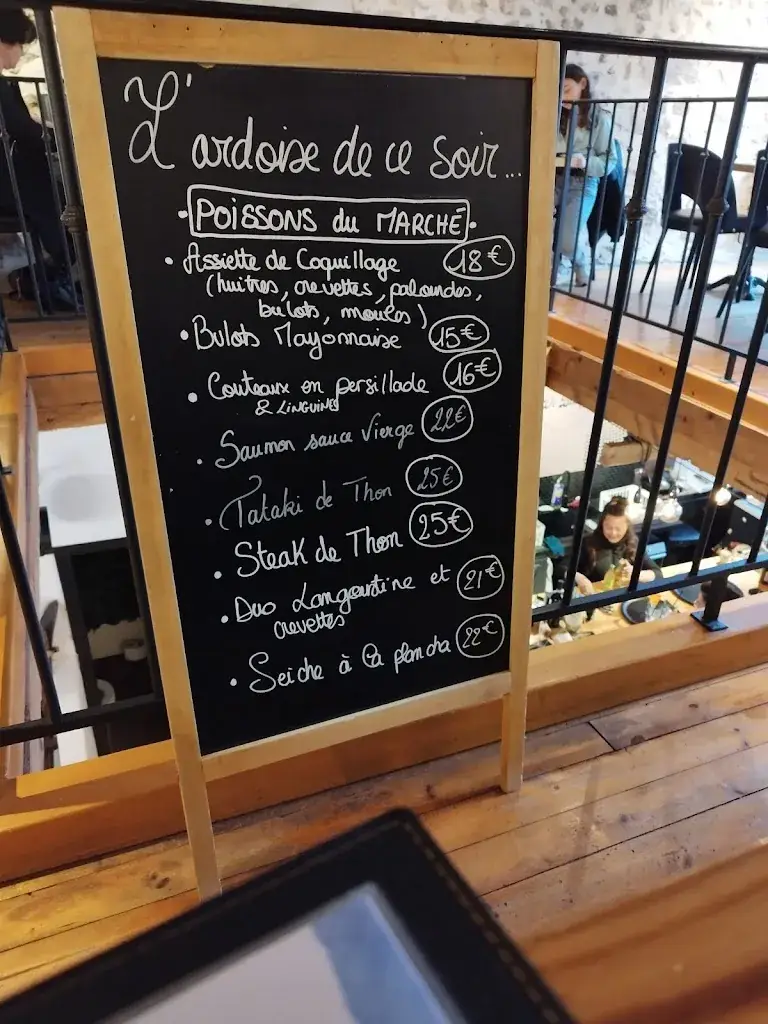 L'ardoise de ce soir...
• POISSONS du MARCHÉ •
• Assiette de Coquillage 18€
(huitres, crevettes, palourdes,
bulots, moules)
• Bulots Mayonnaise 15€
• Couteaux en persillade 16€
& LINGUINES
• Saumon sauce Vierge 22€
• Tataki de Thon 25€
• Steak de Thon 25€
• Duo Langoustine et 21€
crevettes
• Seiche à la plancha 22€